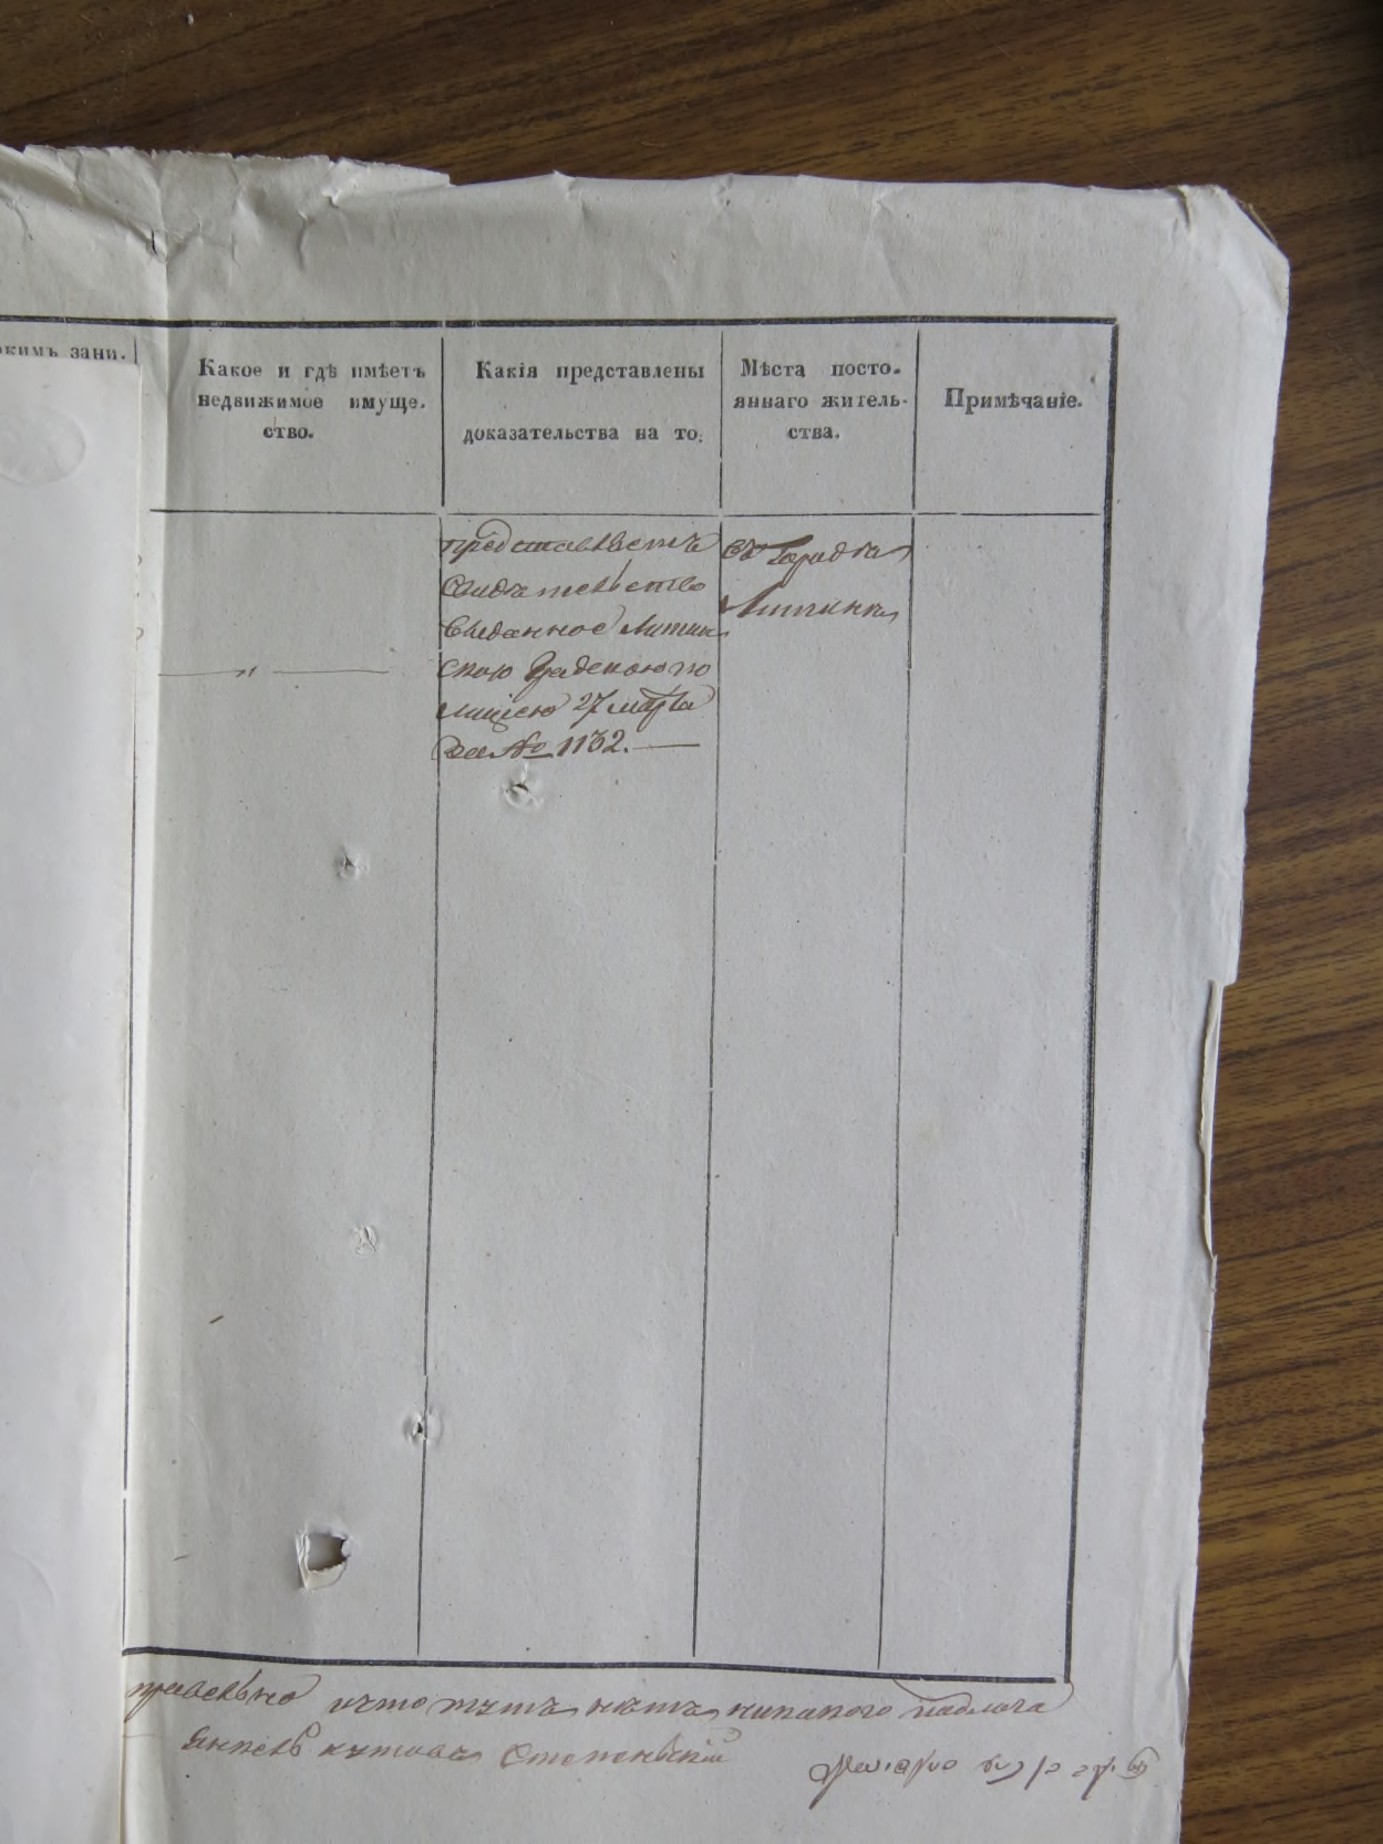 кимъ зани.
Какое и гдѣ имѣетъ
недвижимое имуще.
ство.
Какія представлены
доказательства на то.
Мѣста посто.
яннаго житель-
ства.
Примѣчаніе.
представляетъ
Свидѣтельство
выданное Литин
скою Градскою по
лициею 27 марта
за № 1132.—
Въ Городѣ
Литинѣ
— " —
правельно и что тутъ нетъ никакого подлога